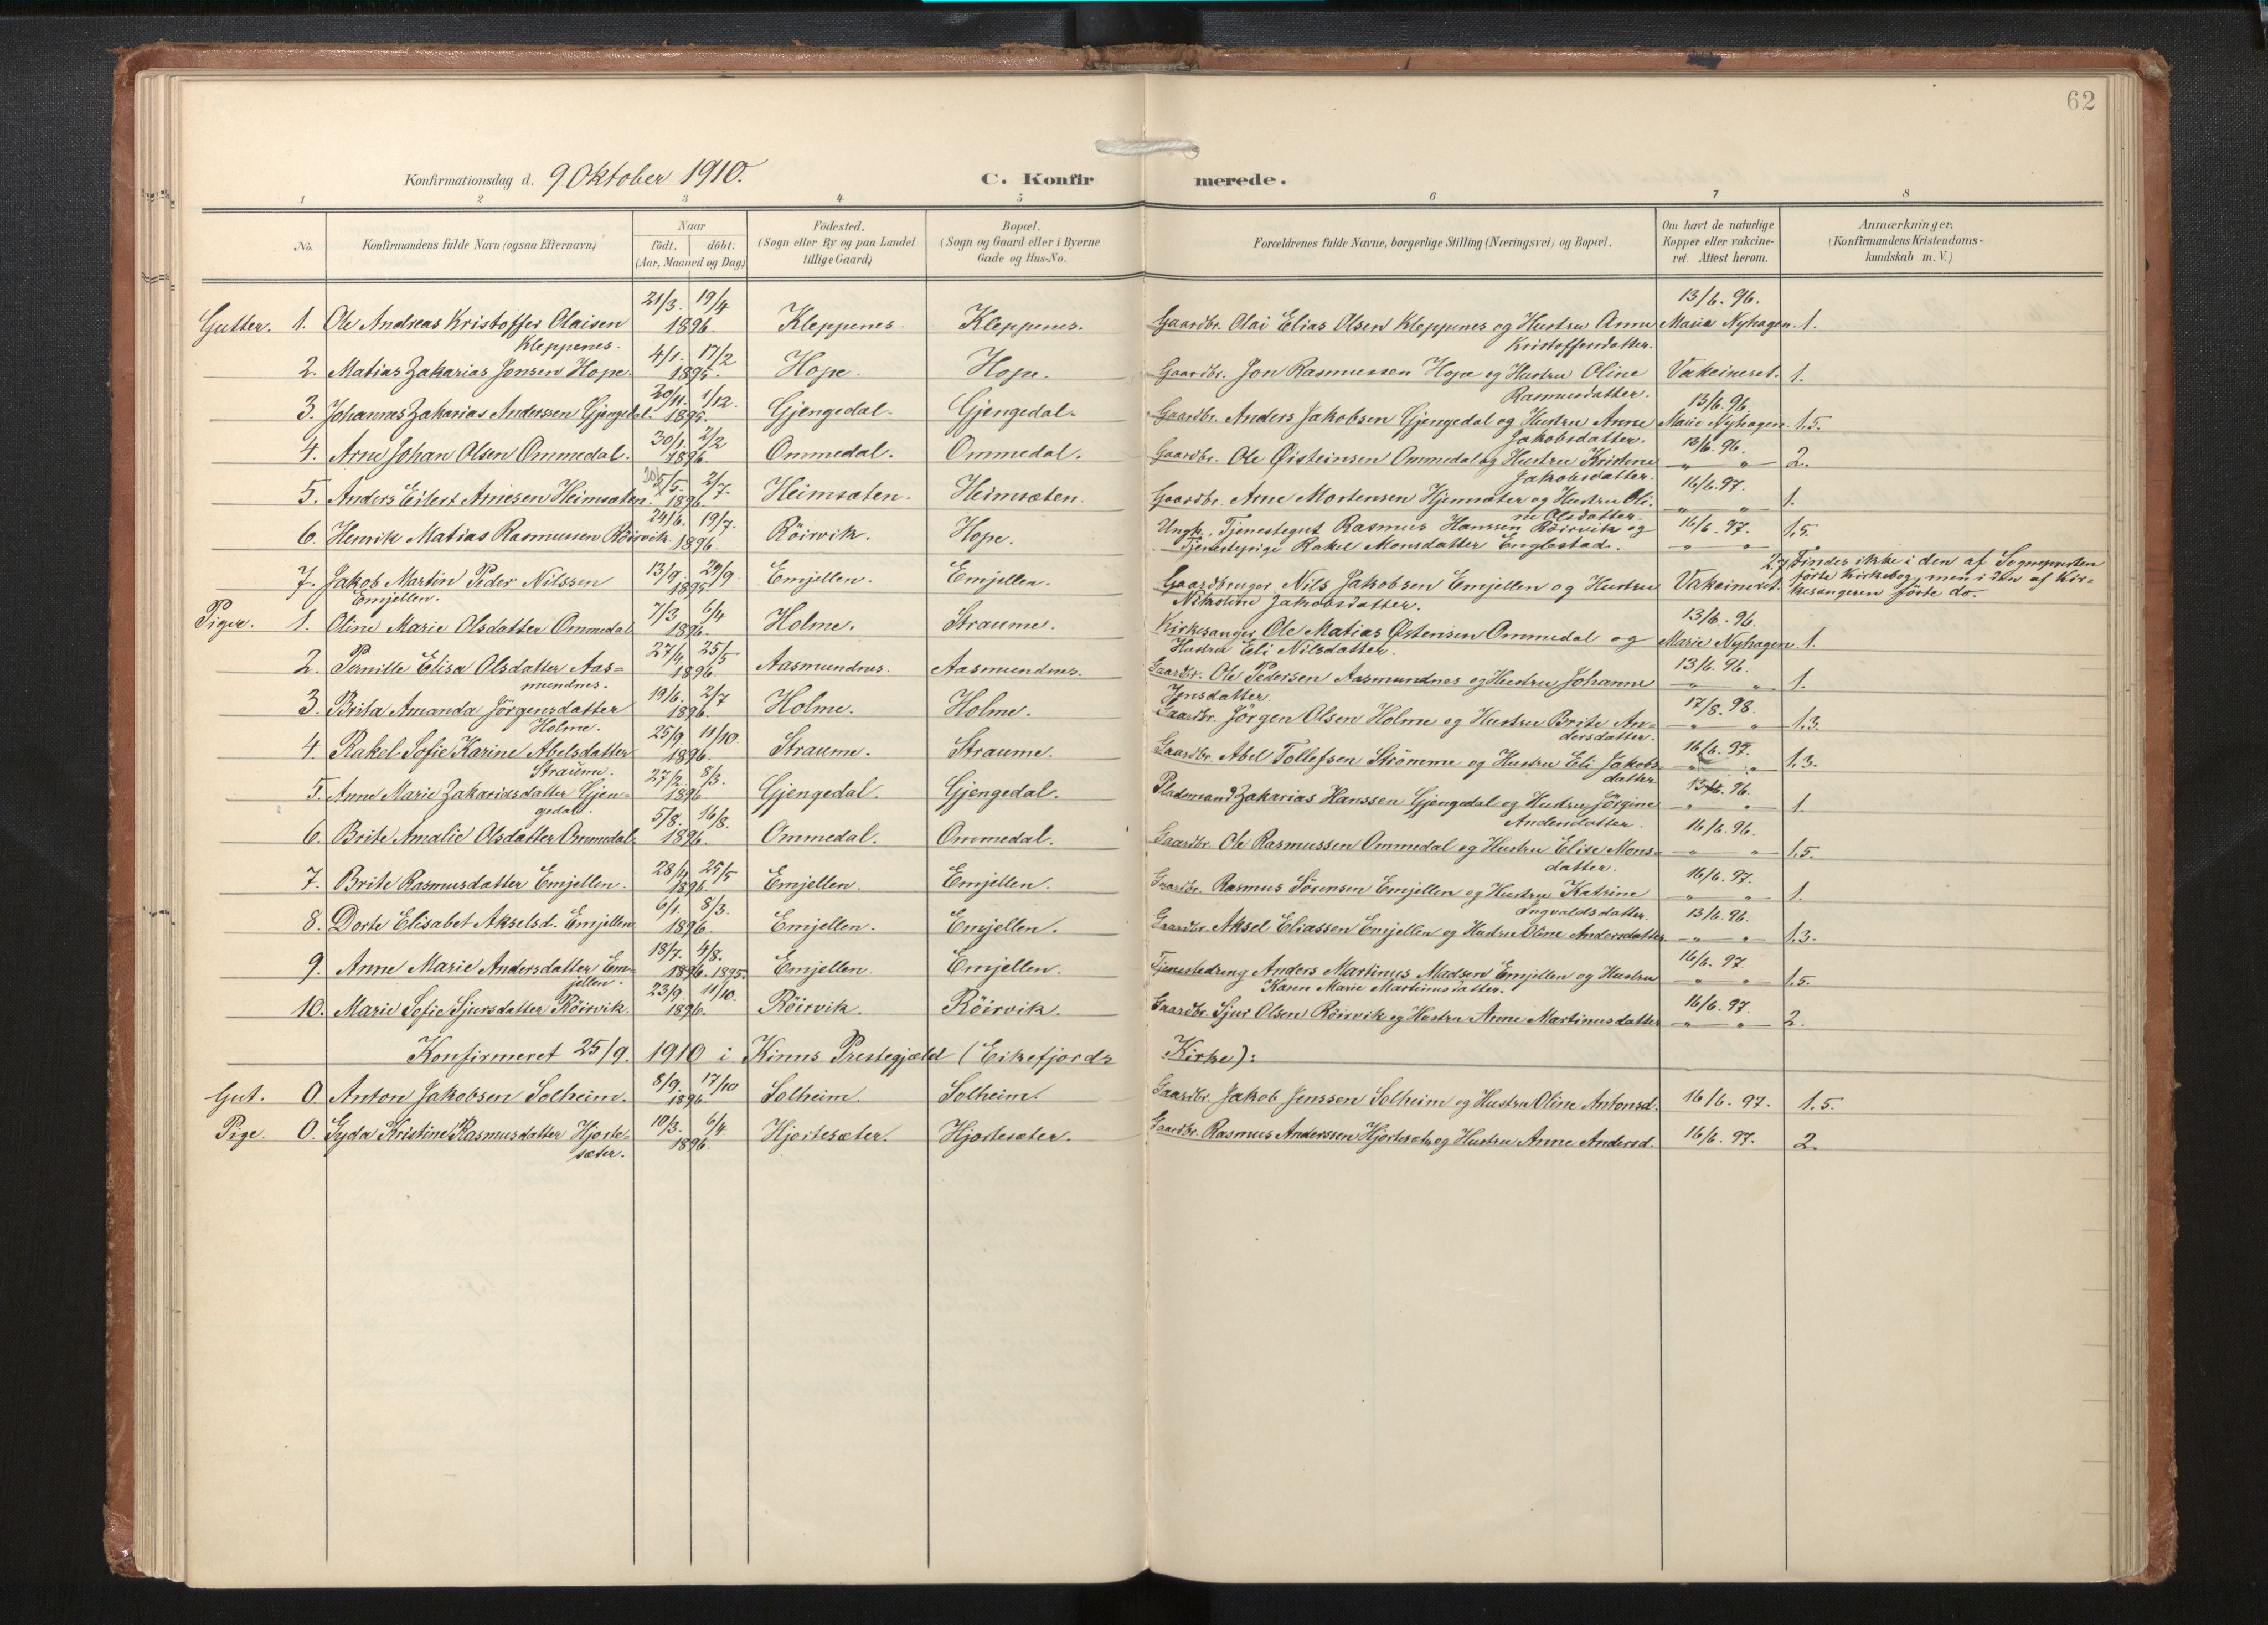 62
Konfirmationsdag d. 9 Oktober 1910.
C. Konfirmerede.
1 2 3 4 5 6 7 8
No.
Konfirmandens fulde Navn (ogsaa Efternavn)
Naar
født. døbt.
(Aar, Maaned og Dag)
Fødested.
(Sogn eller By og paa Landet
tillige Gaard)
Bopæl.
(Sogn og Gaard eller i Byerne
Gade og Hus-No.
Forældrenes fulde Navne, borgerlige Stilling (Næringsvei) og Bopæl.
Om havt de naturlige
Kopper eller vakcine-
ret. Attest herom.
Anmærkninger.
(Konfirmandens Kristendoms-
kundskab m. V.)
21/3. 19/4 13/6. 96.
Gutter. 1. Ole Andreas Kristoffer Olaisen 1896. Kleppenes. Kleppenes. Gaardbr. Olai Elias Olsen Kleppenes og Hustru Anne Marie Nyhagen. 1.
Kleppenes. Kristoffersdatter.
4/1. 17/2
2. Matias Zakarias Jonsen Hope. 1895. Hope. Hope. Gaardbr. Jon Rasmussen Hope og Hustru Oline Vakcineret. 1.
Rasmusdatter.
20/11. 1/12. 13/6. 96.
3. Johannes Zakarias Anderssen Gjengedal. 1895. Gjengedal. Gjengedal. Gaardbr. Anders Jakobsen Gjengedal og Hustru Anne Marie Nyhagen. 1.5.
Jakobsdatter.
30/1. 2/2 13/6. 96.
4. Arne Johan Olsen Ommedal. 1896. Ommedal. Ommedal. Gaardbr. Ole Øisteinsen Ommedal og Hustru Kristine „ „ 2.
Jakobsdatter.
/5. 2/7. 16/6. 97.
5. Anders Eilert Arnesen Heimsæten. 1896. Heimsæten. Heimsæten. Gaardbr. Arne Mortensen Hjemsæter og Hustru Oli- „ „ 1.
ne Olsdatter.
24/6. 19/7.
6. Henrik Matias Rasmussen Röirvik. 1896. Röirvik. Hope. Ungk., Tjenestegut Rasmus Hanssen Röirvik og 16/6. 97. 1,5.
Tjenestepige Rakel Monsdatter Englestad. „ „
13/9. 29/9. 2,7 Findes ikke i den af Sognepresten
7. Jakob Martin Peder Nilssen 1895 Emjellen. Emjellen. Gaardbruger Nils Jakobsen Emjellen og Hustru Vakcineret. förte Kirkebog, men i den af Kir-
Emjellen. Nikoline Jakobsdatter. kesangeren förte do.
7/3. 6/4 13/6. 96.
Piger. 1. Oline Marie Olsdatter Ommedal 1896. Holme. Straume. Kirkesanger Ole Matias Østensen Ommedal og Marie Nyhagen 1.
Hustru Eli Nilsdatter.
27/4. 25/5 13/6. 96.
2. Pernille Elisa Olsdatter Aas- 1896. Aasmundnes. Aasmundnes. Gaardbr. Ole Pedersen Aasmundnes og Hustru Johanne „ „ 1.
mundnes. Jensdatter.
19/6. 2/7 17/8. 98.
3. Brita Amanda Jörgensdatter 1896. Holme. Holme. Gaardbr. Jörgen Olsen Holme og Hustru Brite An- „ „ 1.3.
Holme. dersdatter.
25/9. 11/10. 16/6. 97.
4. Rakel Sofie Karine Abelsdatter 1896. Straume. Straume. Gaardbr. Abel Tollefsen Strömme og Hustru Eli Jakobs- „ „ 1.3.
Straume. datter.
27/2. 8/3. 13/6. 96.
5. Anne Marie Zakariasdatter Gjen- 1896 Gjengedal. Gjengedal. Pladsmand Zakarias Hanssen Gjengedal og Hustru Jörgine „ „ 1.
gedal. Andersdatter.
5/8. 16/8. 16/6. 96.
6. Brite Amalie Olsdatter Ommedal. 1896. Ommedal. Ommedal. Gaardbr. Ole Rasmussen Ommedal og Hustru Elise Mons- „ „ 1.5.
datter.
28/4. 25/5 16/6. 97.
7. Brite Rasmusdatter Emjellen. 1896. Emjellen. Emjellen. Gaardbr. Rasmus Sörensen Emjellen og Hustru Katrine „ „ 1.
Ingvaldsdatter.
6/1. 8/3. 13/6. 96.
8. Dorte Elisabet Akselsd. Emjellen. 1896. Emjellen. Emjellen. Gaardbr. Aksel Eliassen Emjellen og Hustru Oline Andersdatter „ „ 1.3.
18/7. 4/8. 16/6. 97.
9. Anne Marie Andersdatter Em- 1896. 1895. Emjellen. Emjellen. Tjenestedreng Anders Martinus Madsen Emjellen og Hustru „ „ 1.5.
jellen. Karen Marie Martinusdatter.
23/9. 11/10. 16/6. 97.
10. Marie Sofie Sjursdatter Röirvik. 1896. Röirvik. Röirvik. Gaardbr. Sjur Olsen Röirvik og Hustru Anne Martinusdatter „ „ 2.
Konfirmeret 25/9. 1910 i Kinns Prestegjæld (Eikefjords Kirke):
8/9. 17/10
Gut. 0. Anton Jakobsen Solheim. 1896. Solheim. Solheim. Gaardbr. Jakob Jenssen Solheim og Hustru Oline Antonsd. 16/6. 97. 1.5.
10/3. 6/4.
Pige. 0. Gyda Kristine Rasmusdatter Hjorte- 1896. Hjortesæter. Hjortesæter. Gaardbr. Rasmus Anderssen Hjortesæt. og Hustru Anne Andersd. 16/6. 97. 2.
sæter.